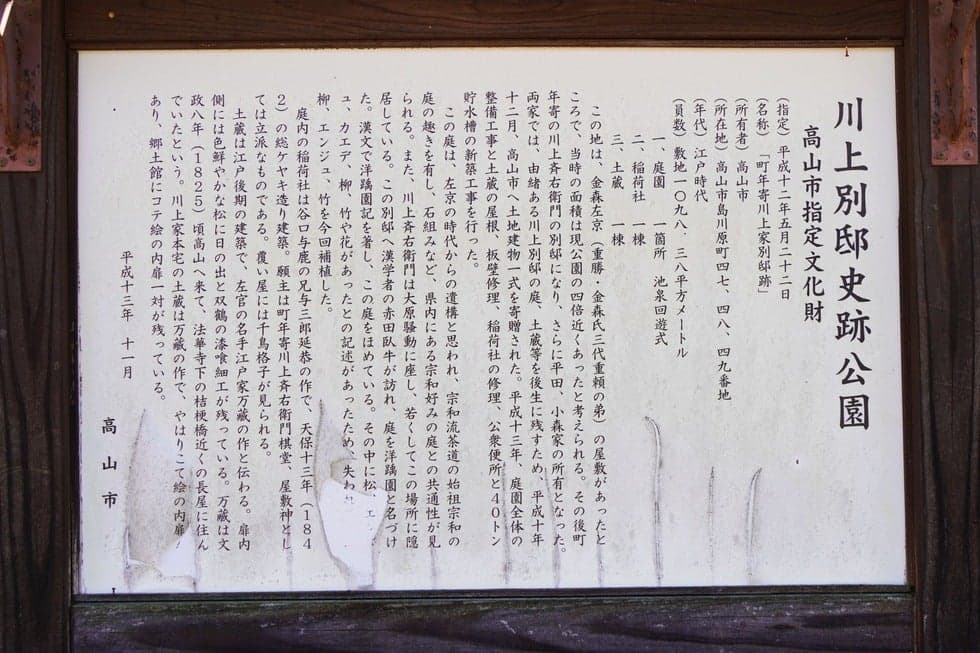 川上別邸史跡公園
高山市指定文化財
(指定) 平成十二年五月二十二日
(名称) 「町年寄川上家別邸跡」
(所有者) 高山市
(所在地) 高山市島川原町四七、四八、四九番地
(年代) 江戸時代
(員数) 敷地一〇九八．三八平方メートル
一、庭園 一箇所 池泉回遊式
二、稲荷社 一棟
三、土蔵 一棟
この地は、金森左京（重勝・金森氏三代重頼の弟）の屋敷があったと
ころで、当時の面積は現公園の四倍近くあったと考えられる。その後町
年寄の川上斉右衛門の別邸になり、さらに平田、小森家の所有となった。
両家では、由緒ある川上別邸の庭、土蔵等を後生に残すため、平成十年
十二月、高山市へ土地建物一式を寄贈された。平成十三年、庭園全体の
整備工事と土蔵の屋根、板壁修理、稲荷社の修理、公衆便所と４０トン
貯水槽の新築工事を行った。
この庭は、左京の時代からの遺構と思われ、宗和流茶道の始祖宗和の
庭の趣きを有し、石組みなど、県内にある宗和好みの庭との共通性が見
られる。また、川上斉右衛門は大原騒動に座し、若くしてこの場所に隠
居している。この別邸へ漢学者の赤田臥牛が訪れ、庭を洋躊園と名づけ
た。漢文で洋躊園記を著し、この庭をほめている。その中に松、エ
ュ、カエデ、柳、竹や花があったとの記述があったため、失わ
柳、エンジュ、竹を今回補植した。
庭内の稲荷社は谷口与鹿の兄与三郎延恭の作で、天保十三年（１８４
２）の総ケヤキ造り建築。願主は町年寄川上斉右衛門棋堂、屋敷神とし
ては立派なものである。覆い屋には千鳥格子が見られる。
土蔵は江戸後期の建築で、左官の名手江戸家万蔵の作と伝わる。扉内
側には色鮮やかな松に日の出と双鶴の漆喰細工が残っている。万蔵は文
政八年（１８２５）頃高山へ来て、法華寺下の桔梗橋近くの長屋に住ん
でいたという。川上家本宅の土蔵は万蔵の作で、やはりこて絵の内扉
あり、郷土館にコテ絵の内扉一対が残っている。
平成十三年 十一月
高山市